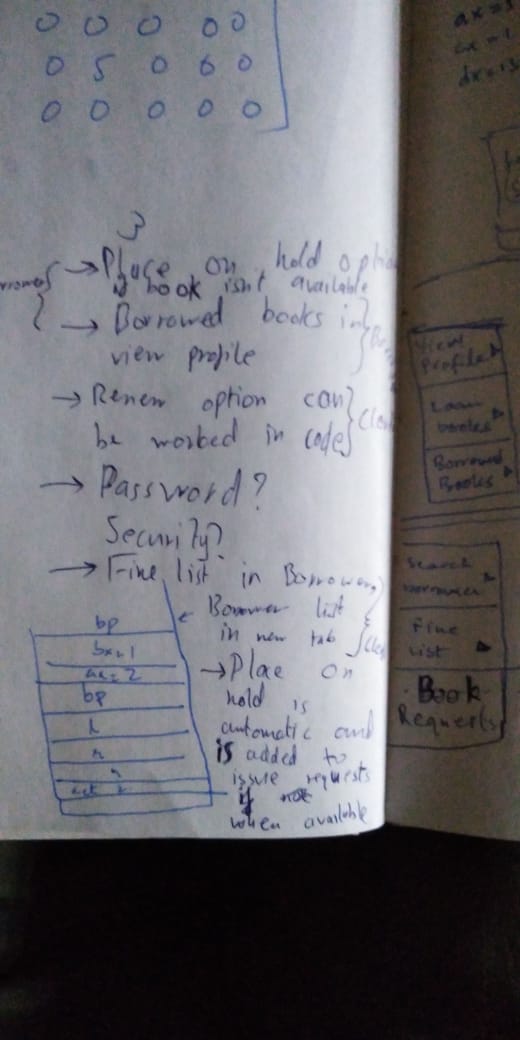 0 0 0 0 0
0 5 0 6 0
0 0 0 0 0
3
→ Place on hold option
if book isn't available
→ Borrowed books in
view profile
→ Renew option can
be worked in code
→ Password?
Security?
→ Fine list in Borrower
Borrower list
in new tab
→ Place on
hold is
automatic and
is added to
issue requests
if
when available
bp
bx=1
ax=2
bp
View
Profile
Loan
books
Borrowed
Books
Search
borrower
Fine
List
Book
Requests